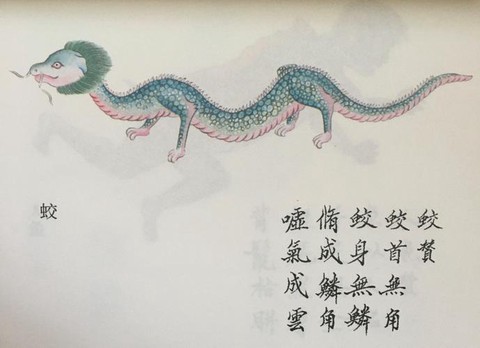 蛟贊
蛟首無角
蛟身無鱗
脩成鱗角
噓氣成雲
蛟